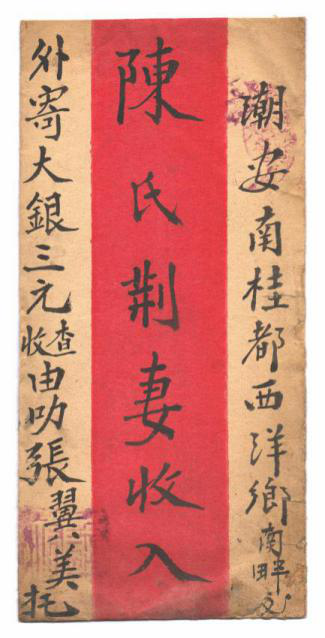 潮安南桂都西洋鄉南畔交
陳氏荆妻收入
外寄大銀三元查收由叻張翼美托